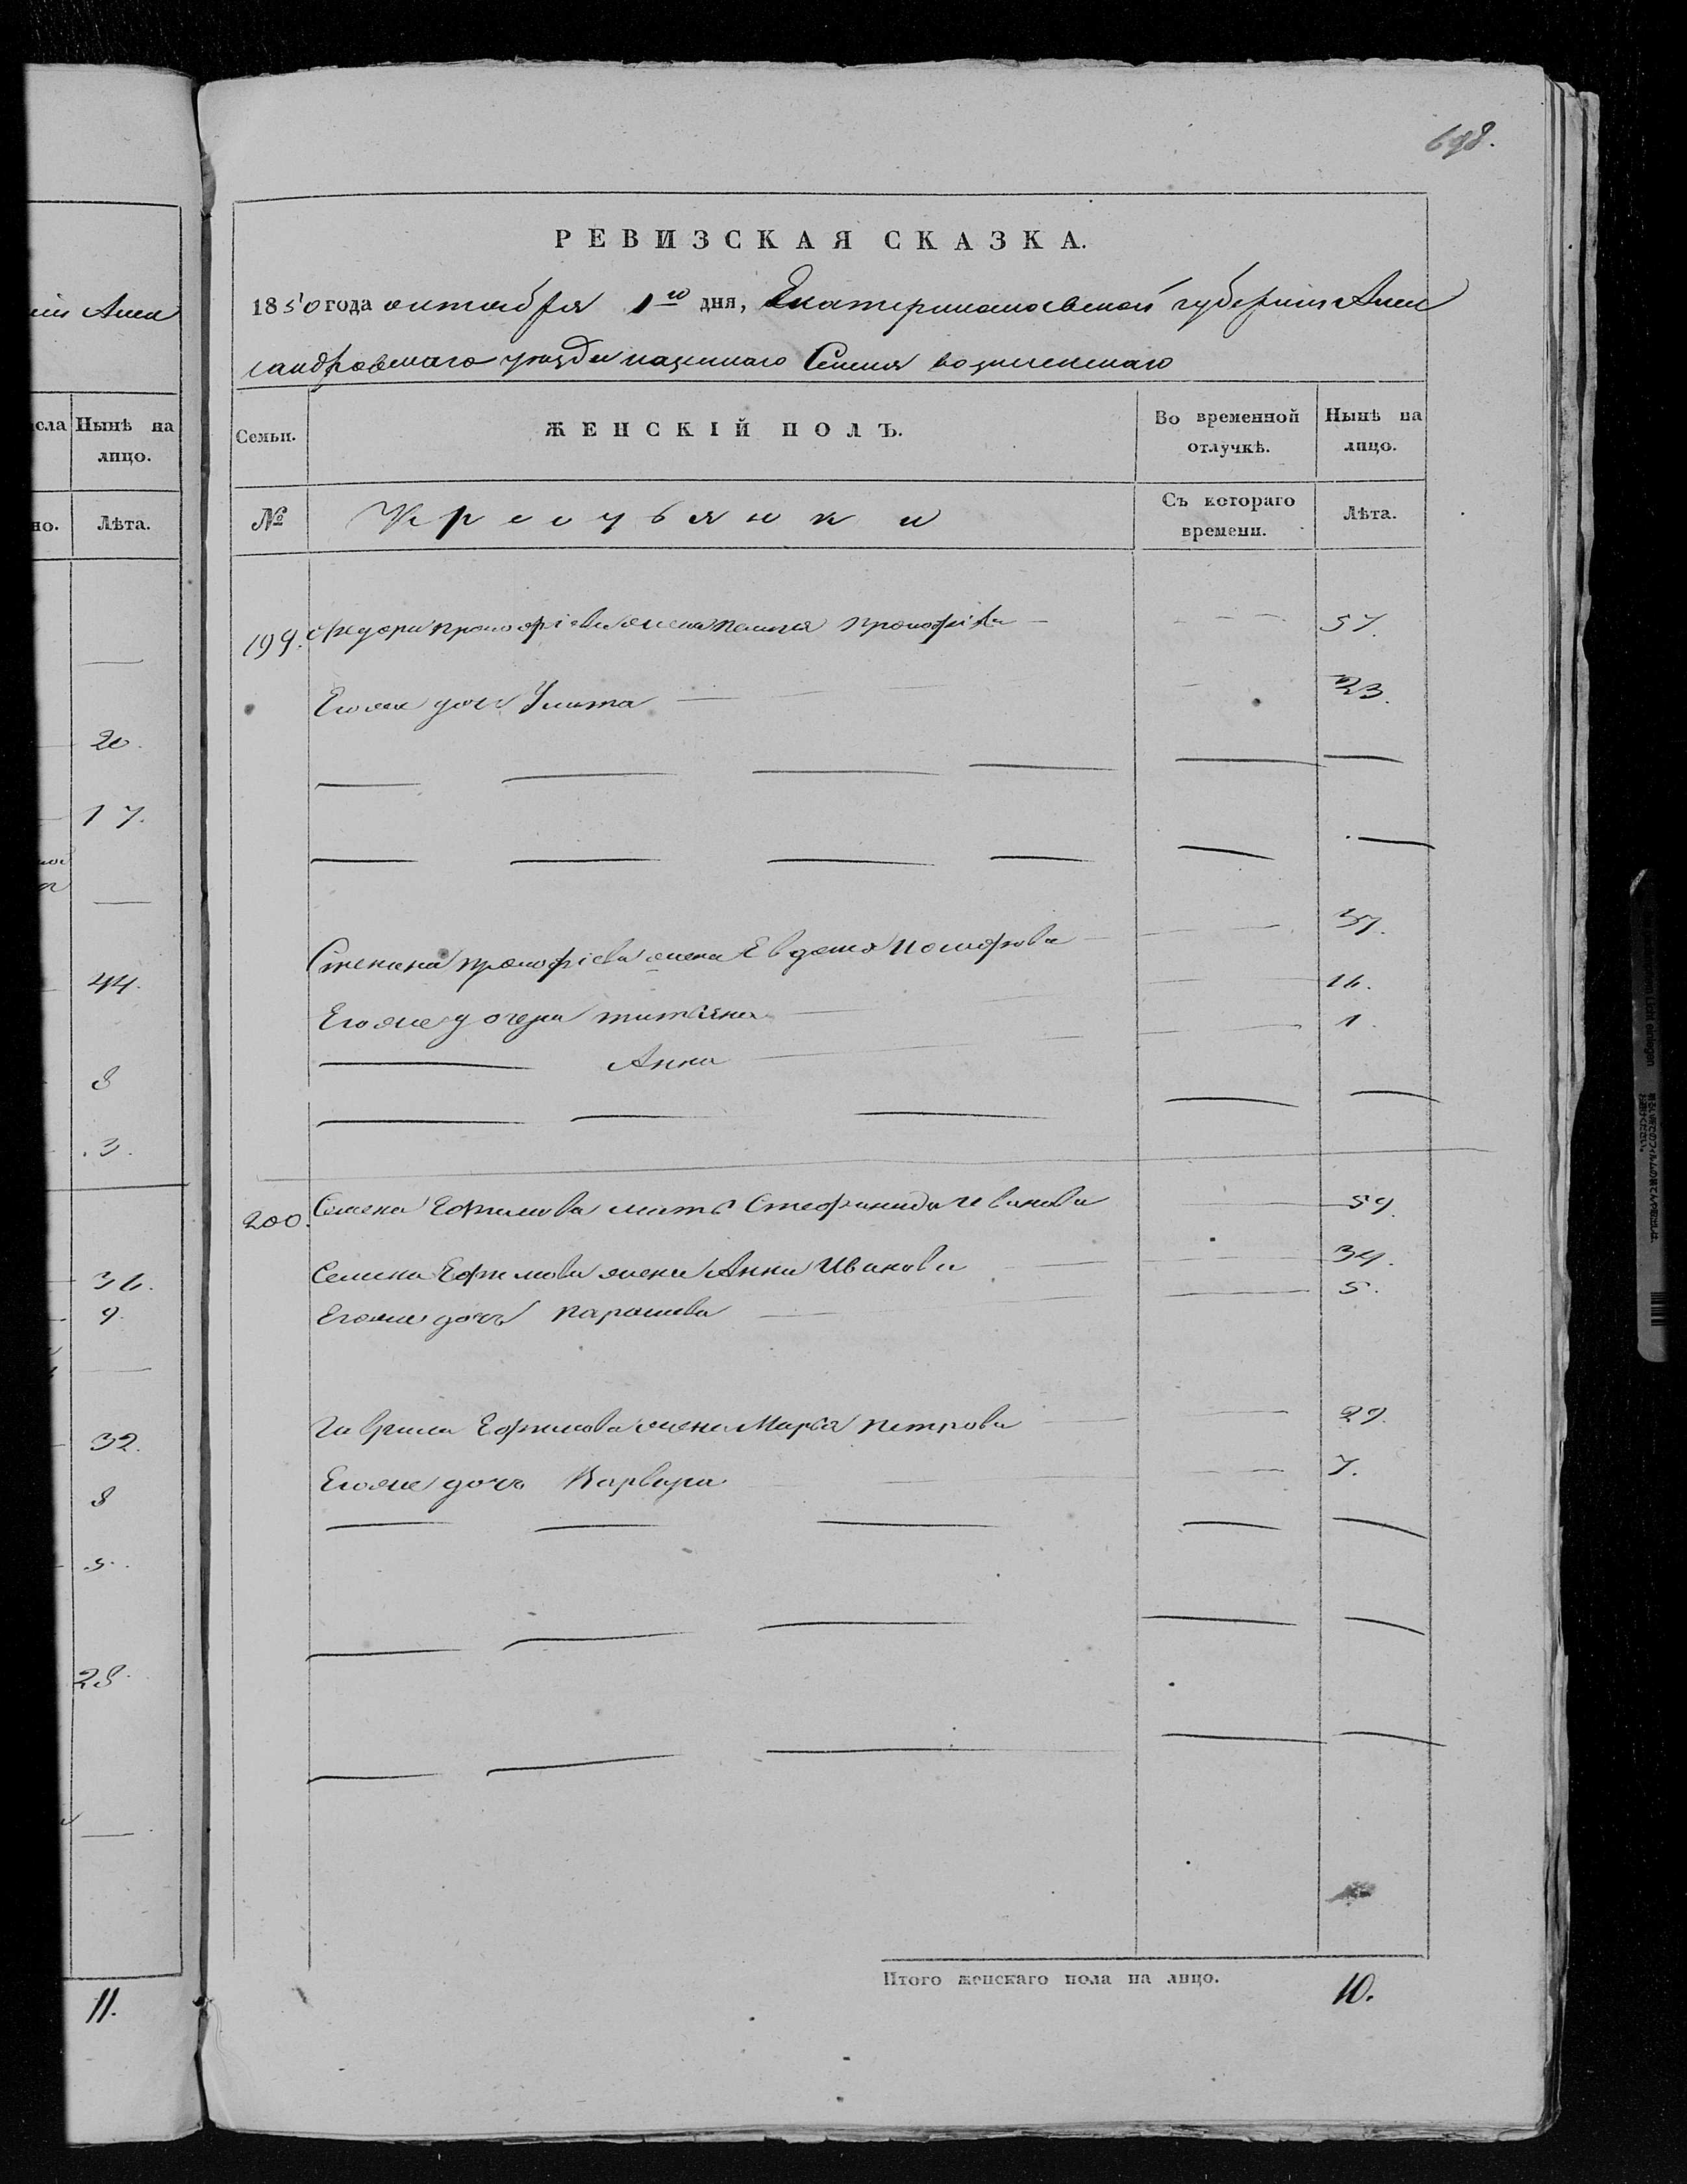 698.
РЕВИЗСКАЯ СКАЗКА.
1850 года октября 1го дня, Екатеринославской губерніи Алек
сандровскаго уезда казеннаго Селения вознесенскаго
Семьи. ЖЕНСКІЙ ПОЛЪ. Во временной отлучкѣ. Нынѣ на лицо.
№ Крестьянки Съ котораго времени. Лѣта.
199. Федора прокофіева жена прокофіева 57.
Егоже дочь Улита 23.
Степана прокофіева жена Евдокия 37.
Егоже дочери татіяна 16.
Анна 1.
200. Семена Ефимова мать Стефанида Иванова 59.
Семена Ефимова жена Анна Иванова 34.
Егоже дочь параскева 5.
Гаврила Ефимова жена Марья петрова 29.
Егоже дочь Варвара 7.
Итого женскаго пола на лицо. 10.
ніи Алек
сла Нынѣ на лицо.
но. Лѣта.
20.
17.
44.
8
3.
36.
9.
32.
8
5.
28.
11.